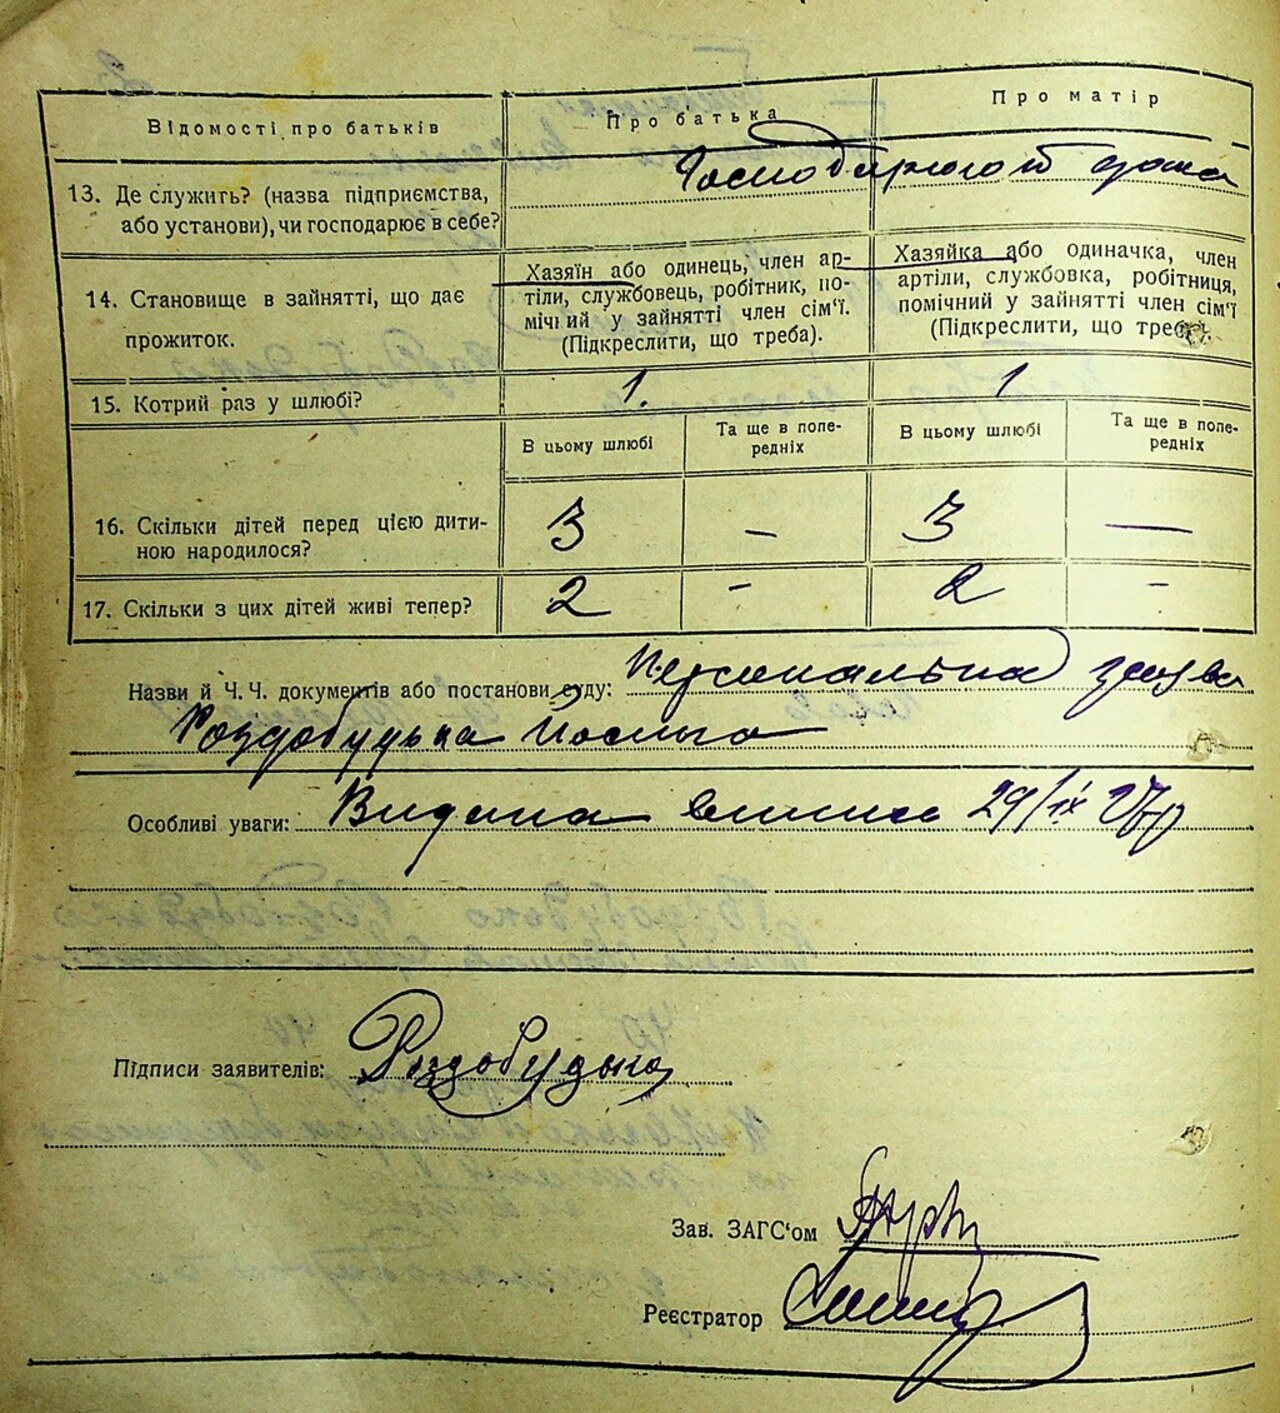 Відомості про батьків
Про батька
Про матір
13. Де служить? (назва підприємства,
або установи), чи господарює в себе?
дома
14. Становище в зайнятті, що дає
прожиток.
Хазяїн або одинець, член ар-
тіли, службовець, робітник, по-
мічний у зайнятті член сім'ї.
(Підкреслити, що треба).
Хазяйка або одиначка, член
артіли, службовка, робітниця,
помічний у зайнятті член сім'ї
(Підкреслити, що треба).
15. Котрий раз у шлюбі?
1.
1
В цьому шлюбі
Та ще в попе-
редніх
В цьому шлюбі
Та ще в попе-
редніх
16. Скільки дітей перед цією дити-
ною народилося?
3
—
3
—
17. Скільки з цих дітей живі тепер?
2
-
2
-
Назви й Ч. Ч. документів або постанови суду: Персональна заява
Роздобудька Йосипа
Особливі уваги: Видана випись 29/IX
Підписи заявителів: Роздобудько
Зав. ЗАГС'ом
Реєстратор